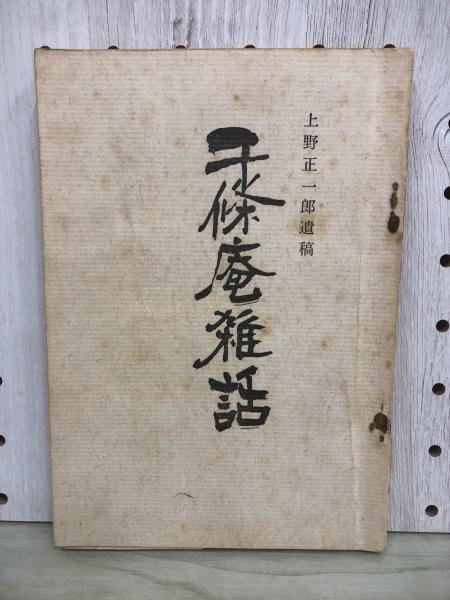 上野正一郎遺稿
千條庵雑話